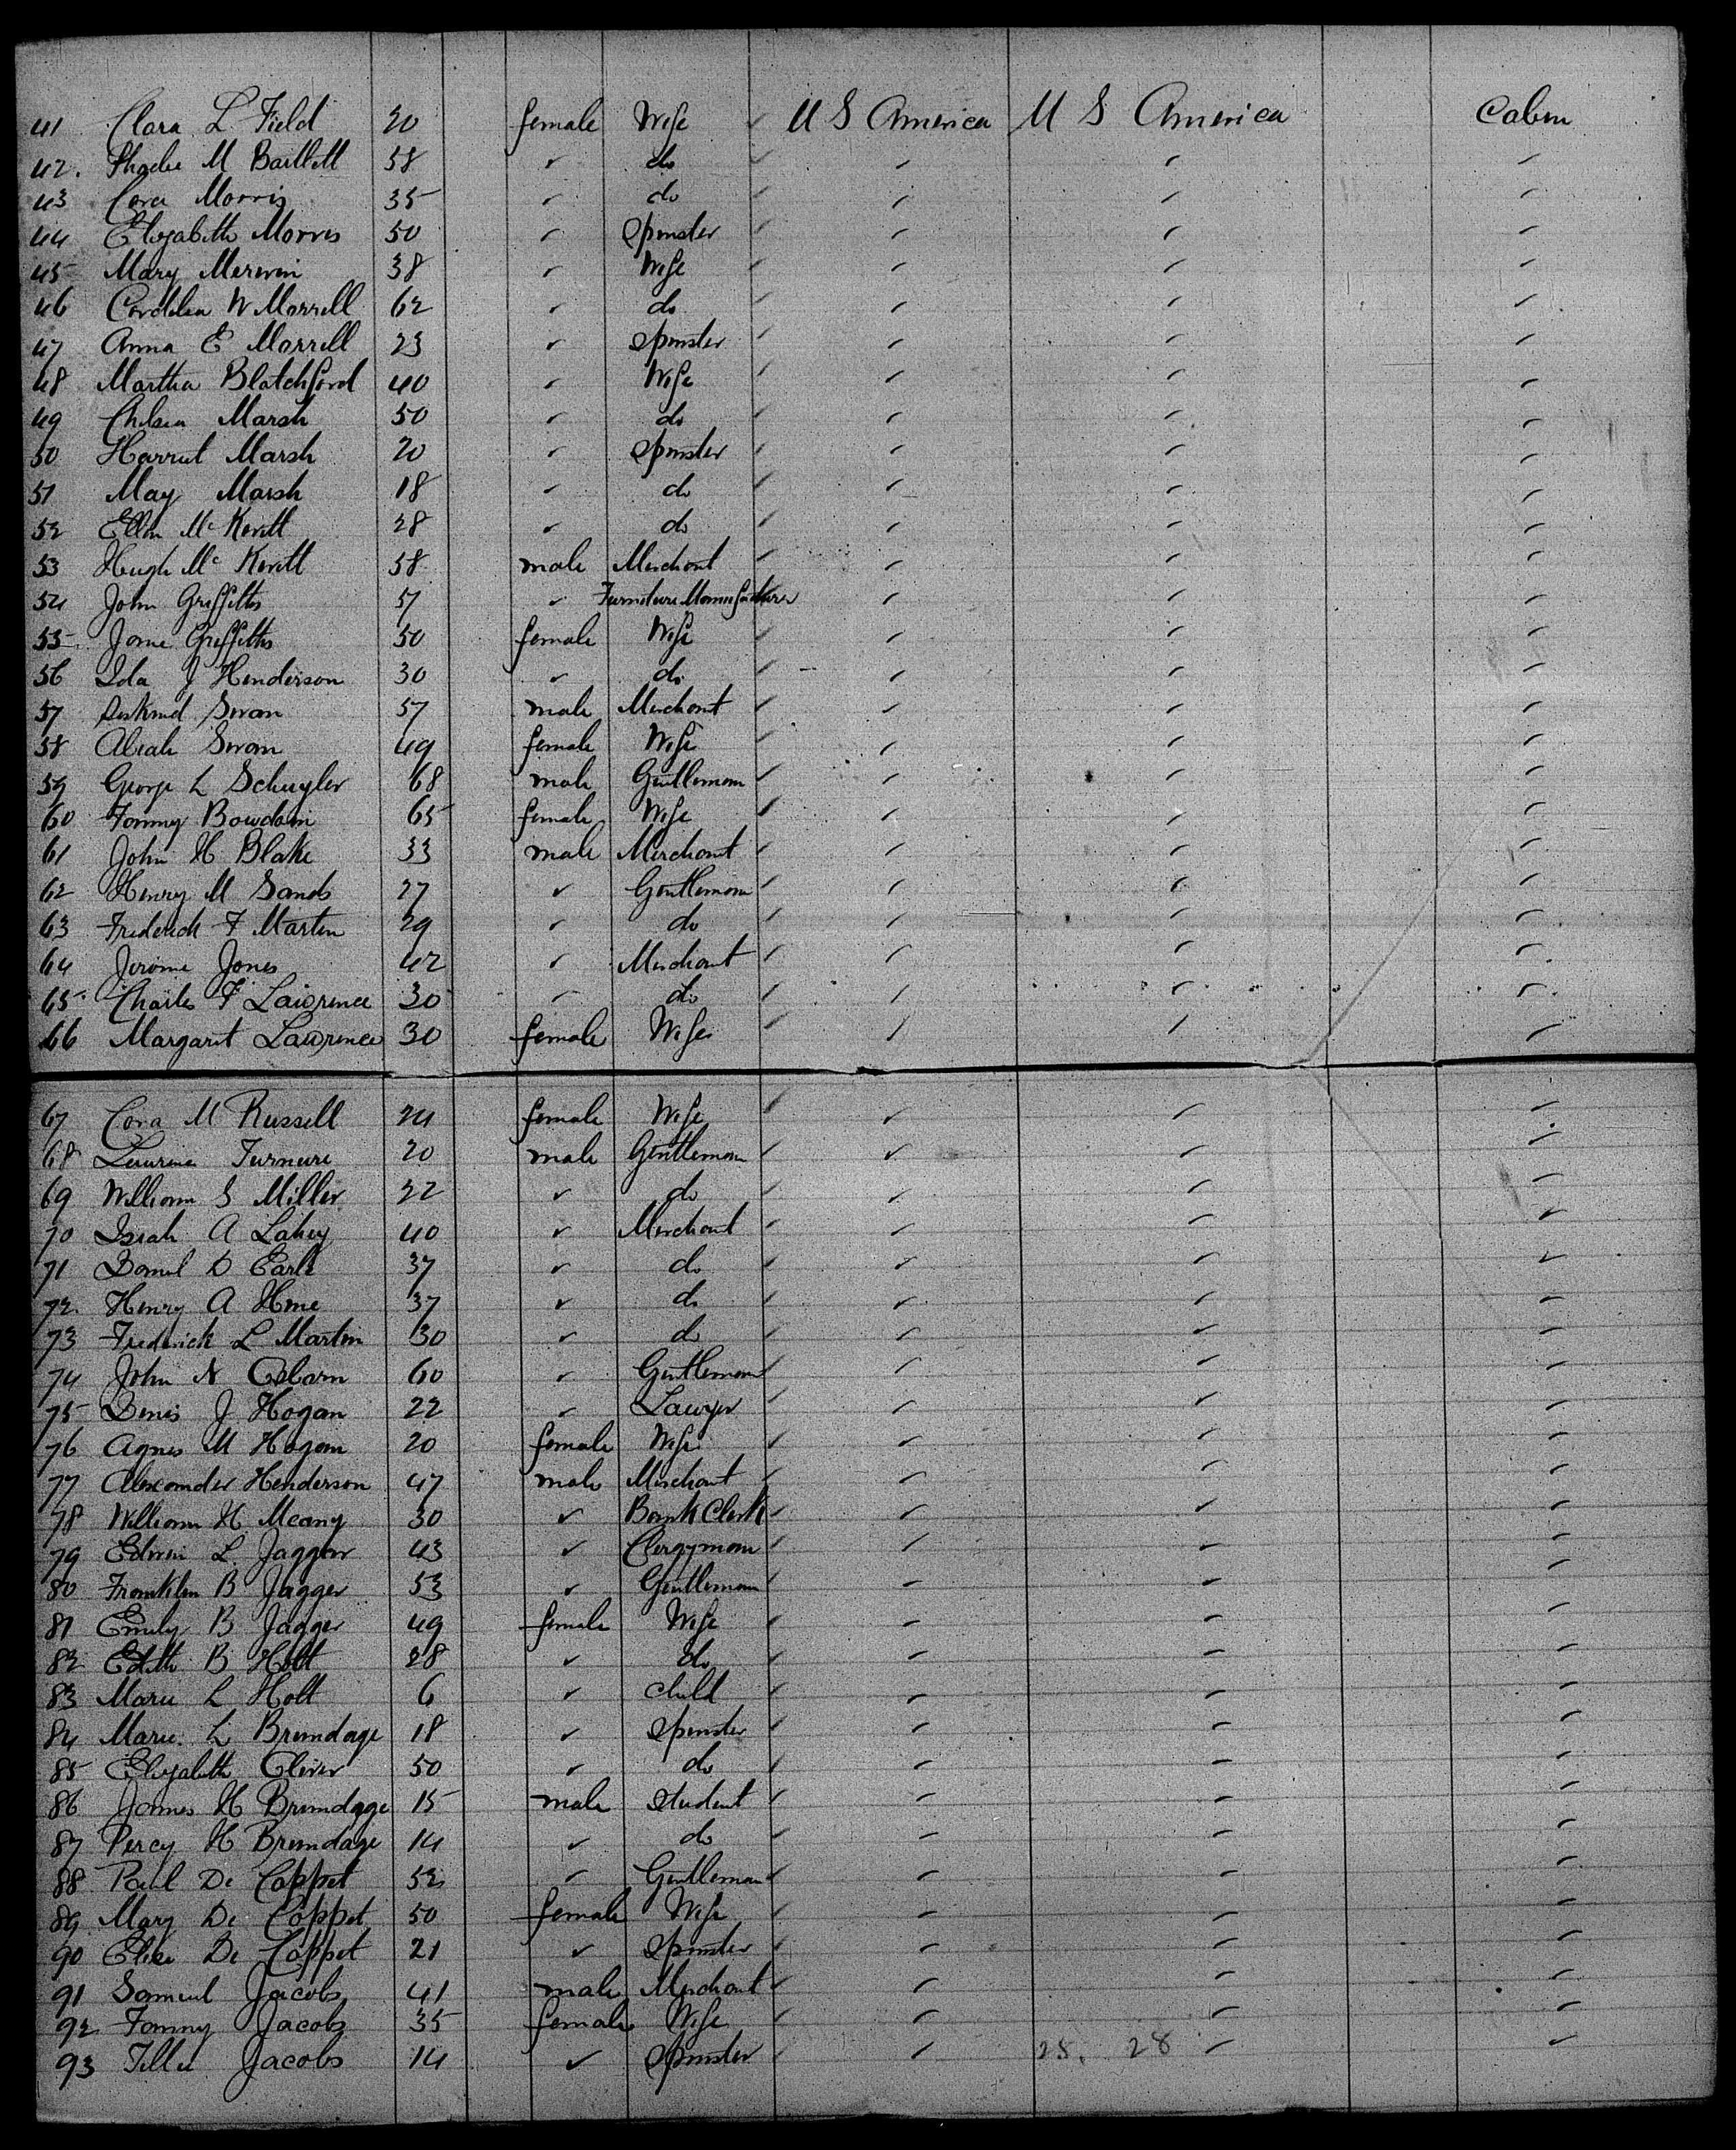 41 Clara L. Field 20 female Wife ✓ U S America U S America Cabin
42. Phoebe M Bartlett 58 ✓ do ✓ ✓ ✓ ✓
43 Cora Morris 35 ✓ do ✓ ✓ ✓ ✓
44 Elizabeth Morris 50 ✓ Spinster ✓ ✓ ✓ ✓
45 Mary Merwin 38 ✓ Wife ✓ ✓ ✓ ✓
46 Cordelia W Morrell 62 ✓ do ✓ ✓ ✓ ✓
47 Anna E Morrell 23 ✓ Spinster ✓ ✓ ✓ ✓
48 Martha Blatchford 40 ✓ Wife ✓ ✓ ✓ ✓
49 Chelsea Marsh 50 ✓ do ✓ ✓ ✓ ✓
50 Harriet Marsh 20 ✓ Spinster ✓ ✓ ✓ ✓
51 May Marsh 18 ✓ do ✓ ✓ ✓ ✓
52 Ellen Mc Kevitt 28 ✓ do ✓ ✓ ✓ ✓
53 Hugh Mc Kevitt 58 male Merchant ✓ ✓ ✓ ✓
54 John Griffiths 57 ✓ Furniture Manufacturer ✓ ✓ ✓
55 Jane Griffiths 50 female Wife ✓ ✓ ✓ ✓
56 Ida J Henderson 30 ✓ do ✓ ✓ ✓ ✓
57 Swan 57 male Merchant ✓ ✓ ✓ ✓
58 Abiah Swan 49 female Wife ✓ ✓ ✓ ✓
59 George L Schuyler 68 male Gentleman ✓ ✓ ✓ ✓
60 Fanny Bowdoin 65 female Wife ✓ ✓ ✓ ✓
61 John H Blake 33 male Merchant ✓ ✓ ✓ ✓
62 Henry M Sands 27 ✓ Gentleman ✓ ✓ ✓ ✓
63 Frederick F Martin 29 ✓ do ✓ ✓ ✓ ✓
64 Jerome Jones 42 ✓ Merchant ✓ ✓ ✓ ✓
65 Charles F Lawrence 30 ✓ do ✓ ✓ ✓ ✓
66 Margaret Lawrence 30 female Wife ✓ ✓ ✓ ✓
67 Cora M Russell 24 female Wife ✓ ✓ ✓ ✓
68 Lawrence Turnure 20 male Gentleman ✓ ✓ ✓ ✓
69 William S Miller 22 ✓ do ✓ ✓ ✓ ✓
70 Isiah A Lahey 40 ✓ Merchant ✓ ✓ ✓ ✓
71 Daniel D Earle 37 ✓ do ✓ ✓ ✓ ✓
72. Henry A 37 ✓ do ✓ ✓ ✓ ✓
73 Frederick L Martin 30 ✓ do ✓ ✓ ✓ ✓
74 John N Osbarn 60 ✓ Gentleman ✓ ✓ ✓ ✓
75 Denis J Hogan 22 ✓ Lawyer ✓ ✓ ✓ ✓
76 Agnes M Hogan 20 female Wife ✓ ✓ ✓ ✓
77 Alexander Henderson 47 male Merchant ✓ ✓ ✓ ✓
78 William H Meany 30 ✓ Bank Clerk ✓ ✓ ✓ ✓
79 Edwin L. Jaggar 43 ✓ Clergyman ✓ ✓ ✓ ✓
80 Franklin B Jagger 53 ✓ Gentleman ✓ ✓ ✓ ✓
81 Emily B Jagger 49 female Wife ✓ ✓ ✓ ✓
82 Edith B Holt 28 ✓ do ✓ ✓ ✓ ✓
83 Marie L Holt 6 ✓ child ✓ ✓ ✓ ✓
84 Marie L Brundage 18 ✓ Spinster ✓ ✓ ✓ ✓
85 Elizabeth Oliver 50 ✓ do ✓ ✓ ✓ ✓
86 James H Brundage 15 male Student ✓ ✓ ✓ ✓
87 Percy H Brundage 14 ✓ do ✓ ✓ ✓ ✓
88 Paul De Coppet 52 ✓ Gentleman ✓ ✓ ✓ ✓
89 Mary De Coppet 50 female Wife ✓ ✓ ✓ ✓
90 Elise De Coppet 21 ✓ Spinster ✓ ✓ ✓ ✓
91 Samuel Jacobs 41 male Merchant ✓ ✓ ✓ ✓
92 Fanny Jacobs 35 female Wife ✓ ✓ ✓ ✓
93 Tillie Jacobs 14 ✓ Spinster ✓ ✓ 25. 28 ✓ ✓